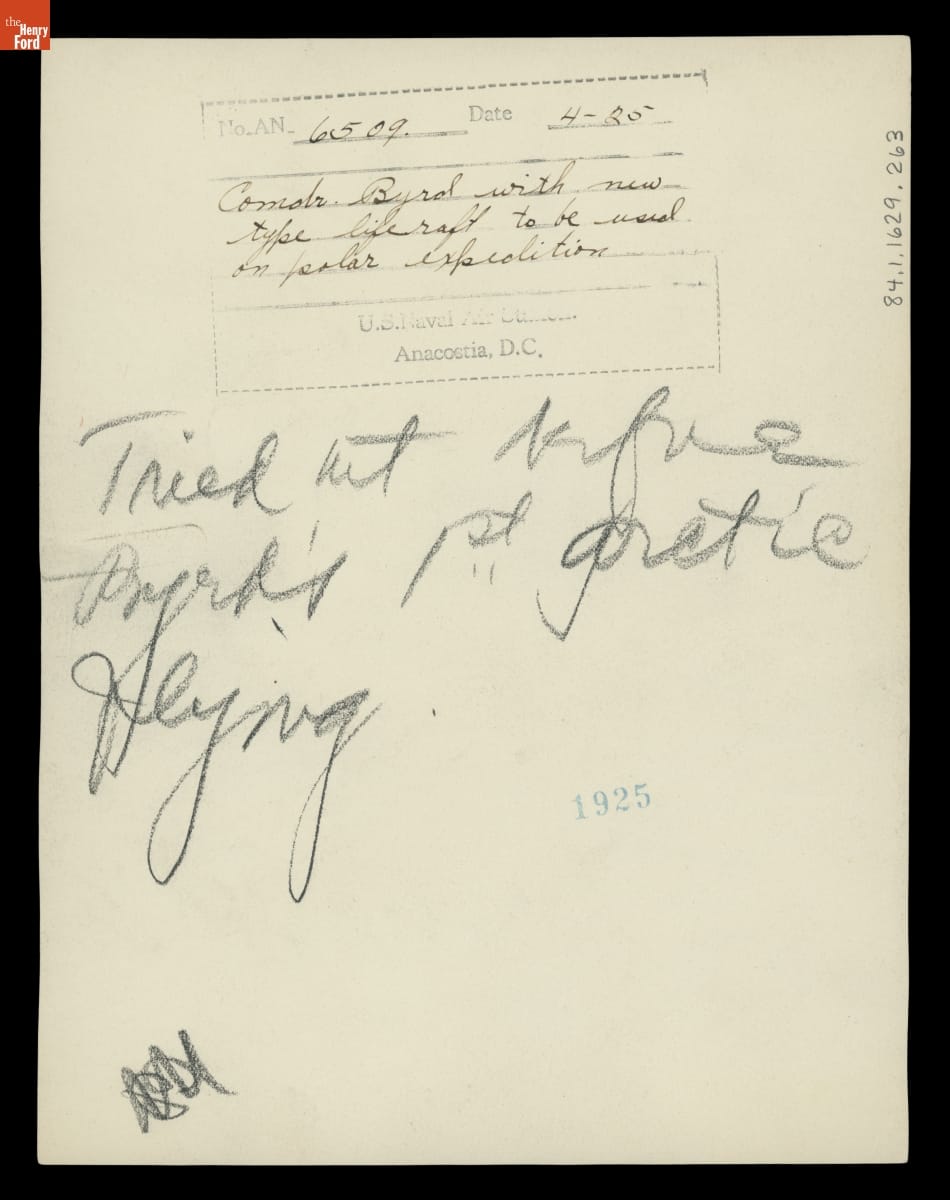 the
Henry
Ford
No. AN- 6509. Date 4-25
Comdr. Byrd with new
type life raft to be used
on polar expedition
U.S. Naval Air Station.
Anacostia, D.C.
84.1.1629.263
Tried out before
Byrd's 1st arctic
flying
1925